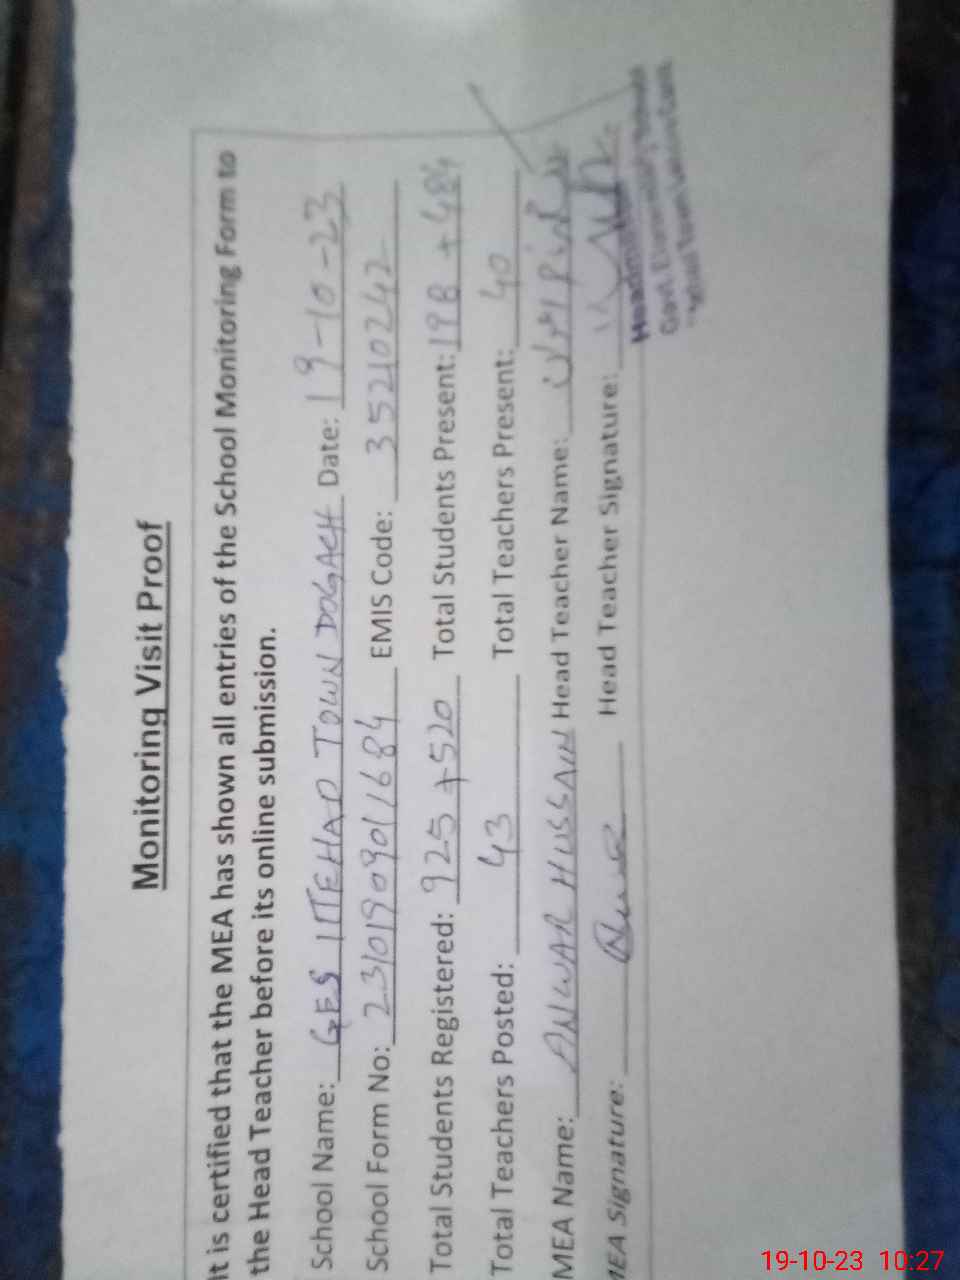 Monitoring Visit Proof
It is certified that the MEA has shown all entries of the School Monitoring Form to
the Head Teacher before its online submission.
School Name: GES ITTEHAD TOWN DOGACH Date: 19-10-23
School Form No: 23101909011684 EMIS Code: 35210242
Total Students Registered: 925+520 Total Students Present: 198+484
Total Teachers Posted: 43 Total Teachers Present: 40
MEA Name: ANWAR HUSSAIN Head Teacher Name:
MEA Signature: Head Teacher Signature:
Govt. Elementary School
19-10-23 10:27